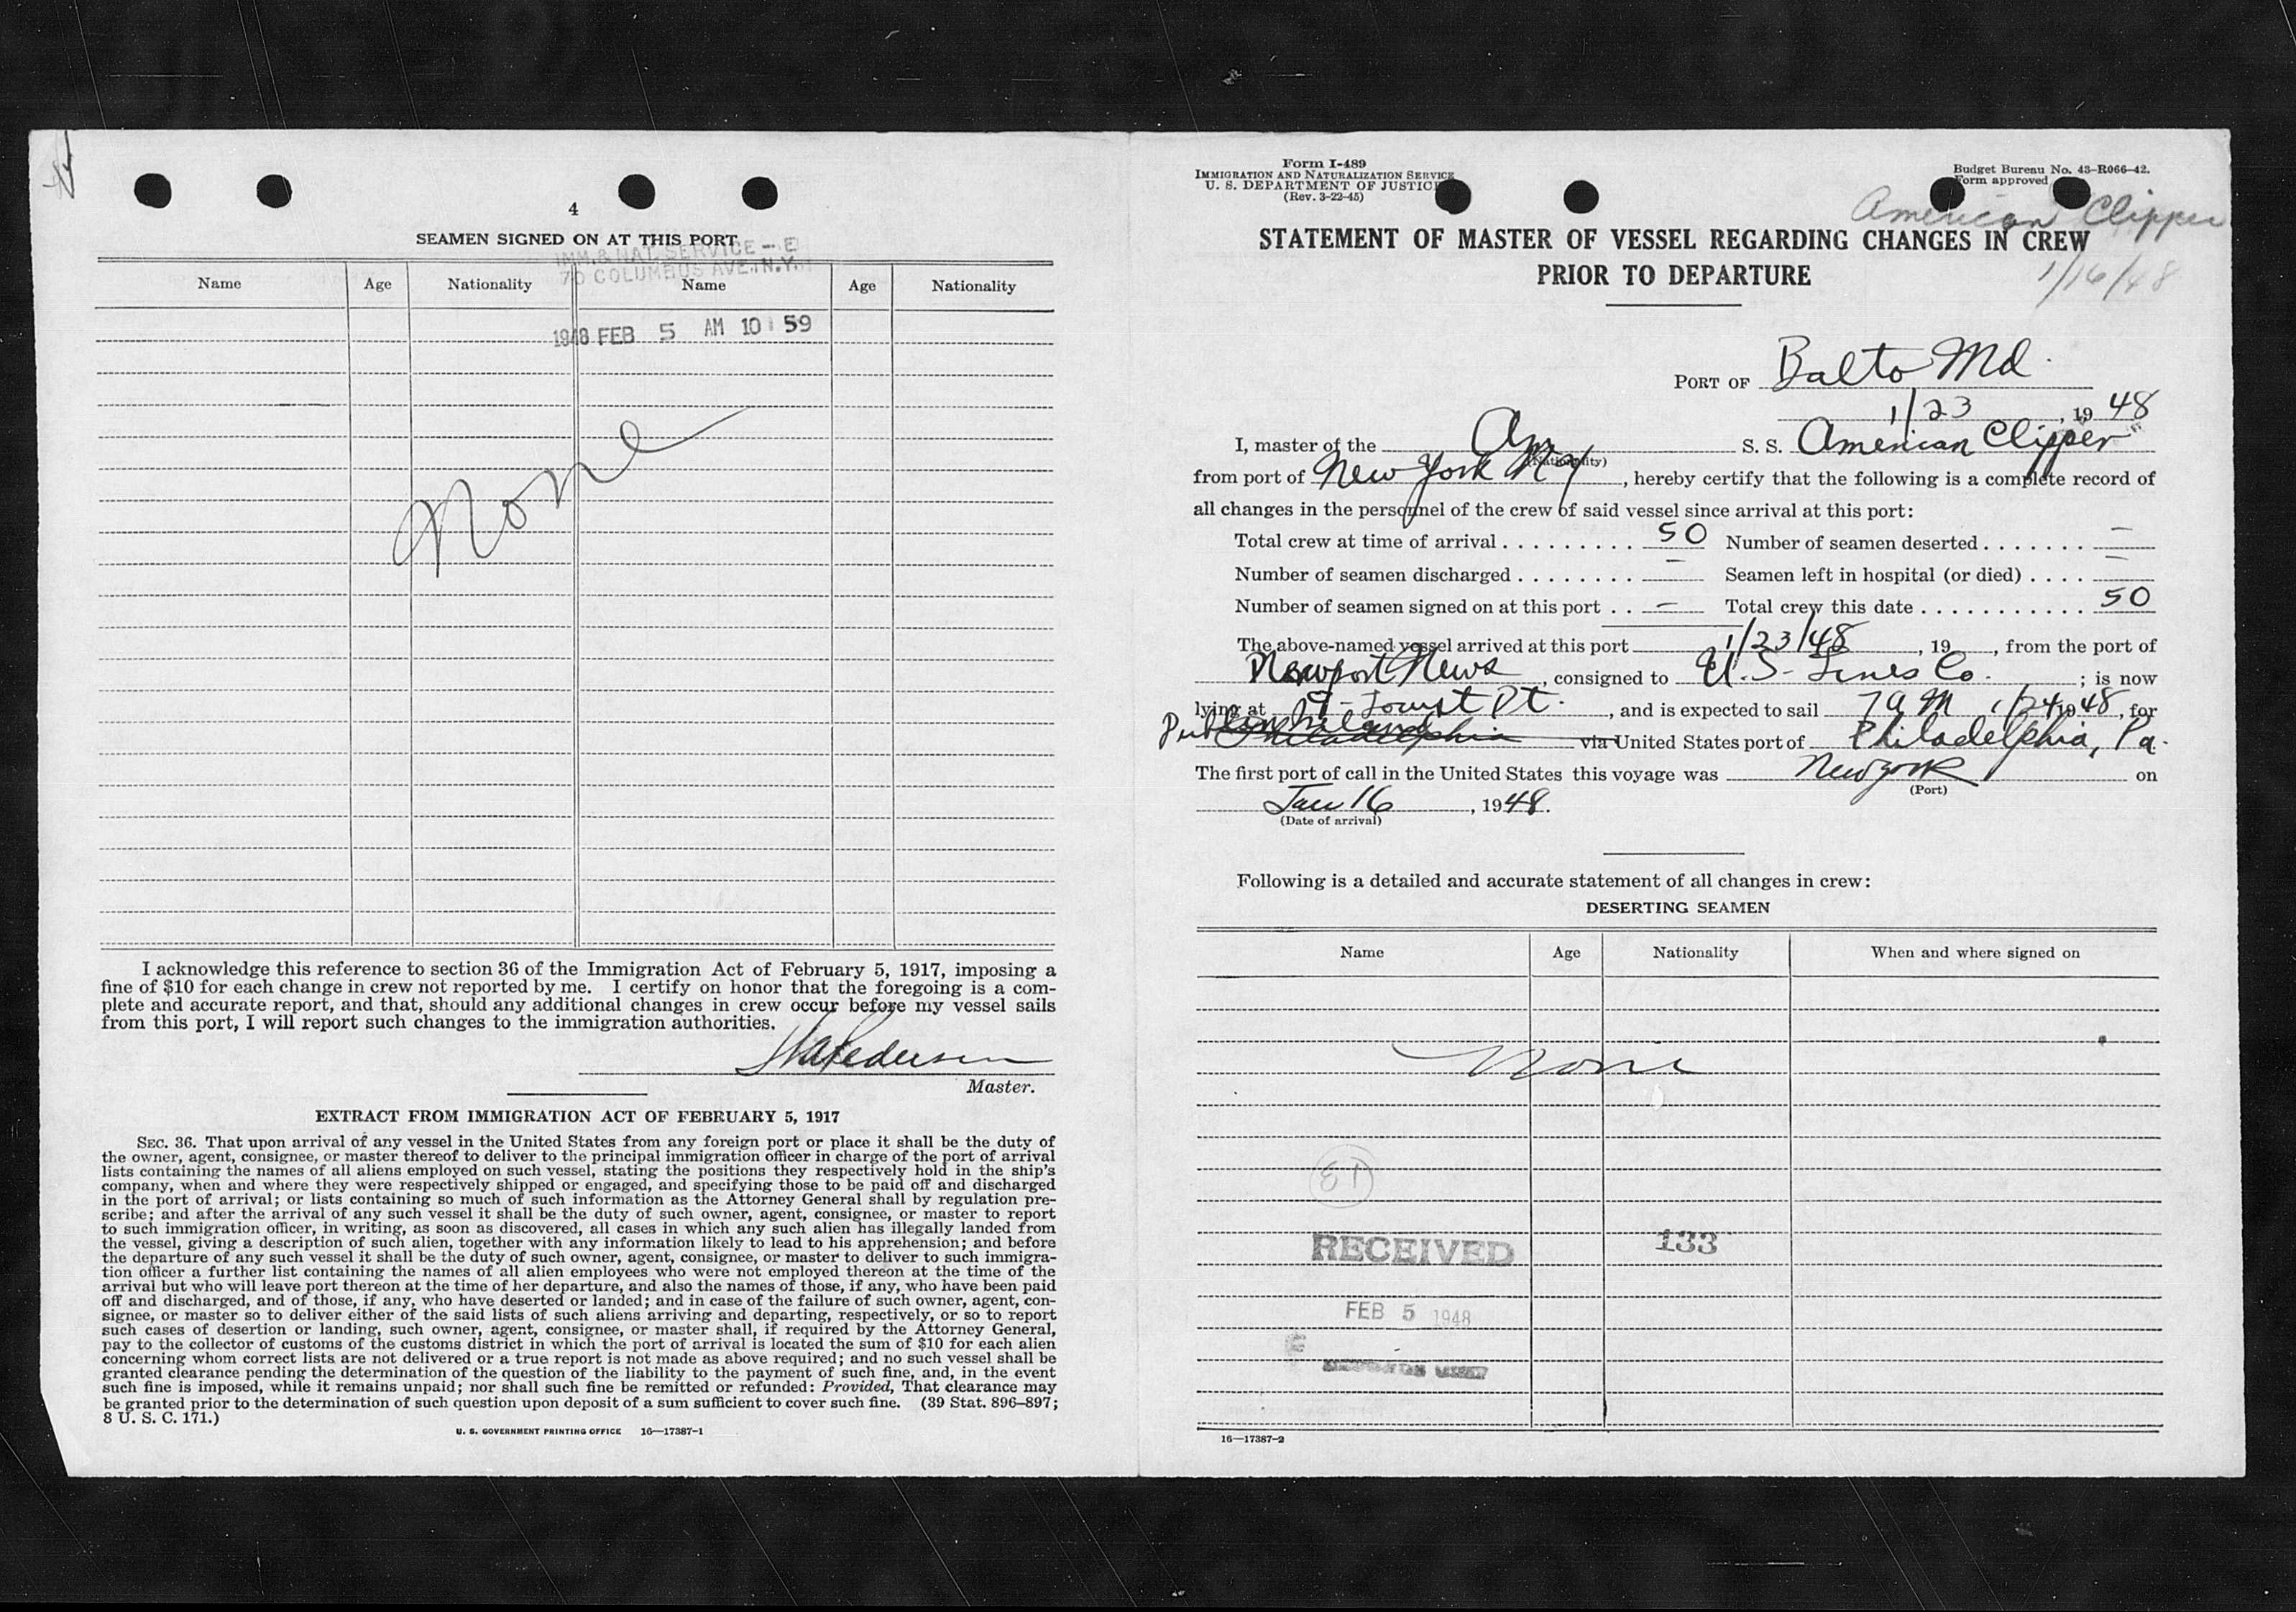 4
SEAMEN SIGNED ON AT THIS PORT
IMM. & NAT. SERVICE — E
70 COLUMBUS AVE. N.Y.
Name Age Nationality Name Age Nationality
1948 FEB 5 AM 10 59
None
I acknowledge this reference to section 36 of the Immigration Act of February 5, 1917, imposing a
fine of $10 for each change in crew not reported by me. I certify on honor that the foregoing is a com-
plete and accurate report, and that, should any additional changes in crew occur before my vessel sails
from this port, I will report such changes to the immigration authorities.
Pedersen
Master.
EXTRACT FROM IMMIGRATION ACT OF FEBRUARY 5, 1917
SEC. 36. That upon arrival of any vessel in the United States from any foreign port or place it shall be the duty of
the owner, agent, consignee, or master thereof to deliver to the principal immigration officer in charge of the port of arrival
lists containing the names of all aliens employed on such vessel, stating the positions they respectively hold in the ship's
company, when and where they were respectively shipped or engaged, and specifying those to be paid off and discharged
in the port of arrival; or lists containing so much of such information as the Attorney General shall by regulation pre-
scribe; and after the arrival of any such vessel it shall be the duty of such owner, agent, consignee, or master to report
to such immigration officer, in writing, as soon as discovered, all cases in which any such alien has illegally landed from
the vessel, giving a description of such alien, together with any information likely to lead to his apprehension; and before
the departure of any such vessel it shall be the duty of such owner, agent, consignee, or master to deliver to such immigra-
tion officer a further list containing the names of all alien employees who were not employed thereon at the time of the
arrival but who will leave port thereon at the time of her departure, and also the names of those, if any, who have been paid
off and discharged, and of those, if any, who have deserted or landed; and in case of the failure of such owner, agent, con-
signee, or master so to deliver either of the said lists of such aliens arriving and departing, respectively, or so to report
such cases of desertion or landing, such owner, agent, consignee, or master shall, if required by the Attorney General,
pay to the collector of customs of the customs district in which the port of arrival is located the sum of $10 for each alien
concerning whom correct lists are not delivered or a true report is not made as above required; and no such vessel shall be
granted clearance pending the determination of the question of the liability to the payment of such fine, and, in the event
such fine is imposed, while it remains unpaid; nor shall such fine be remitted or refunded: Provided, That clearance may
be granted prior to the determination of such question upon deposit of a sum sufficient to cover such fine. (39 Stat. 896–897;
8 U. S. C. 171.)
U. S. GOVERNMENT PRINTING OFFICE 16—17387-1
Form I-489
IMMIGRATION AND NATURALIZATION SERVICE
U. S. DEPARTMENT OF JUSTICE
(Rev. 3-22-45)
Budget Bureau No. 43-R066-42.
Form approved
American Clipper
STATEMENT OF MASTER OF VESSEL REGARDING CHANGES IN CREW
PRIOR TO DEPARTURE
1/16/48
PORT OF Balto Md.
1/23, 19 48
I, master of the Am S. S. American Clipper
(Nationality)
from port of New York NY, hereby certify that the following is a complete record of
all changes in the personnel of the crew of said vessel since arrival at this port:
Total crew at time of arrival . . . . . . . . . 50 Number of seamen deserted . . . . . . . –
Number of seamen discharged . . . . . . . . – Seamen left in hospital (or died) . . . . –
Number of seamen signed on at this port . . – Total crew this date . . . . . . . . . . . 50
The above-named vessel arrived at this port 1/23/48, 19 , from the port of
Newport News, consigned to U.S. Lines Co. ; is now
lying at 9 - Locust Pt., and is expected to sail 7 AM 1/24 1948, for
Philadelphia via United States port of Philadelphia, Pa.
The first port of call in the United States this voyage was New York on
(Port)
Jan 16, 1948.
(Date of arrival)
Following is a detailed and accurate statement of all changes in crew:
DESERTING SEAMEN
Name Age Nationality When and where signed on
None
RECEIVED 133
FEB 5 1948
16—17387-2